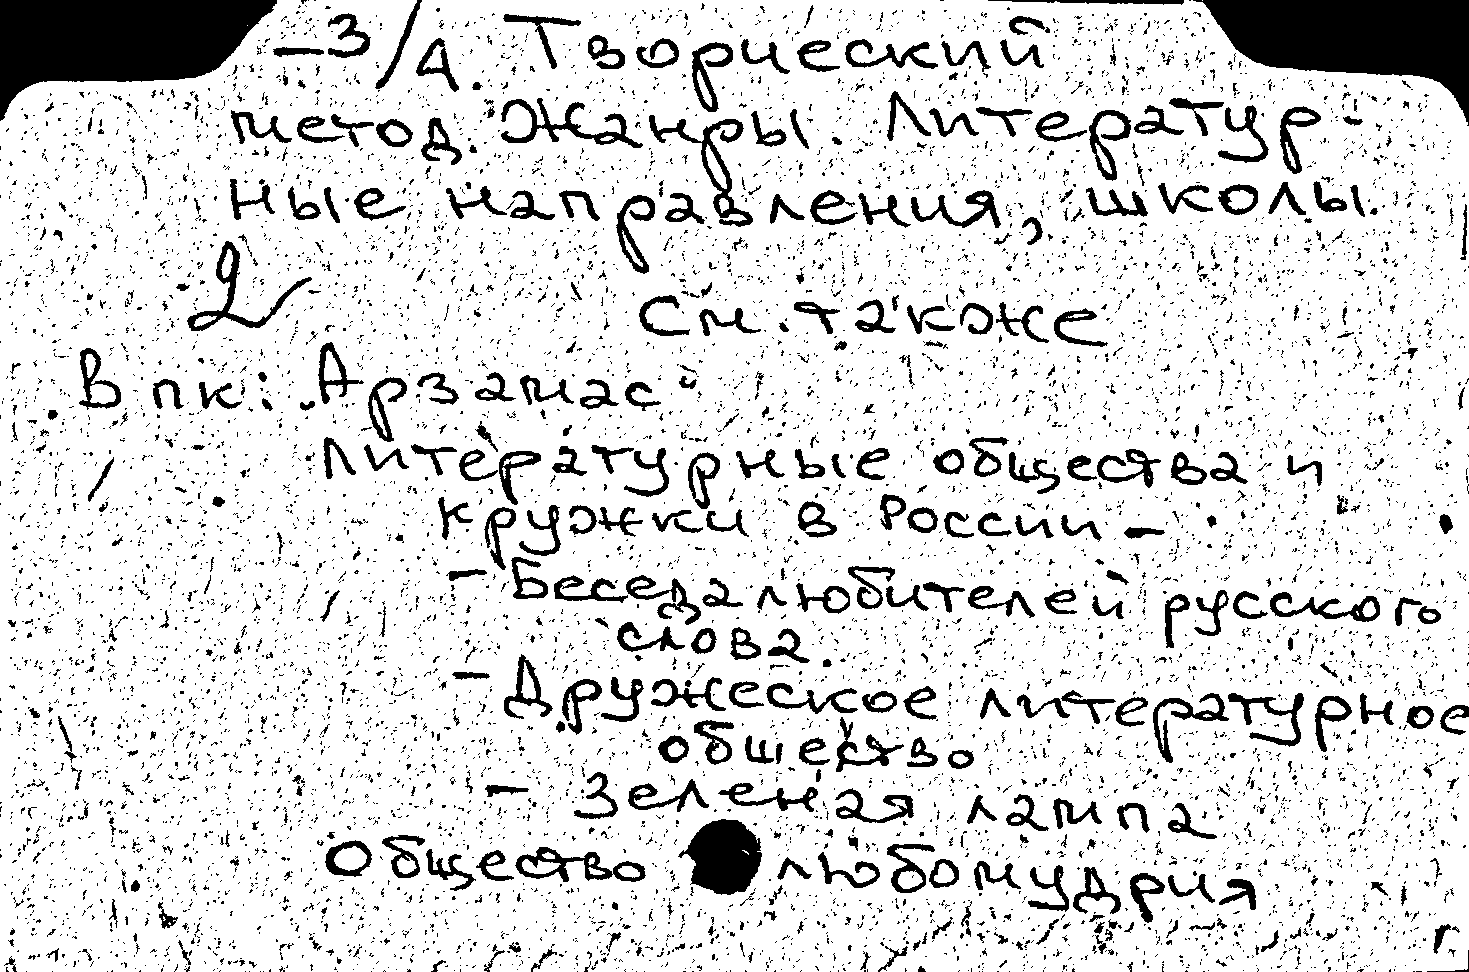 -3/4. Творческий
метод. Жанры. Литератур-
ные направления, школы.
2
См. также
В пк: „Арзамас“
Литературные общества и
кружки в России -
- Беседа любителей русского
слова.
- Дружеское литературное
общество
- Зеленая лампа
Общество любомудрия